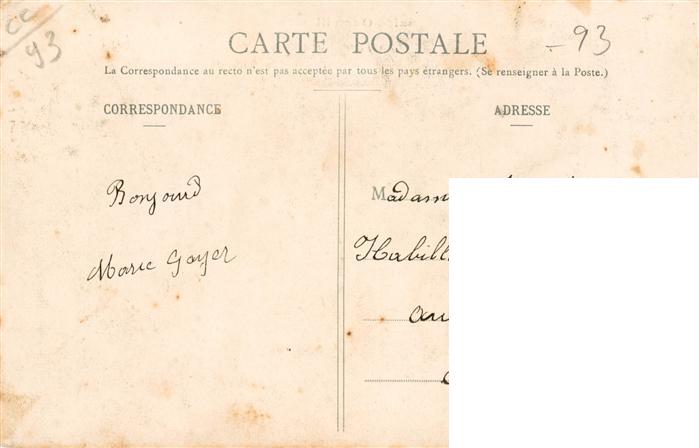 cc
93
CARTE POSTALE
- 93
La Correspondance au recto n'est pas acceptée par tous les pays étrangers. (Se renseigner à la Poste.)
CORRESPONDANCE
ADRESSE
Bonjourd
Marie Goyer
Madam
Habill
au